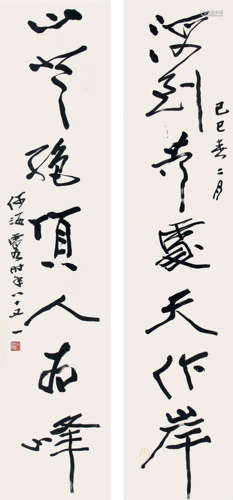 海到尽處天作岸
己巳春二月
山登絶頂人為峰
何海霞时年八十又一